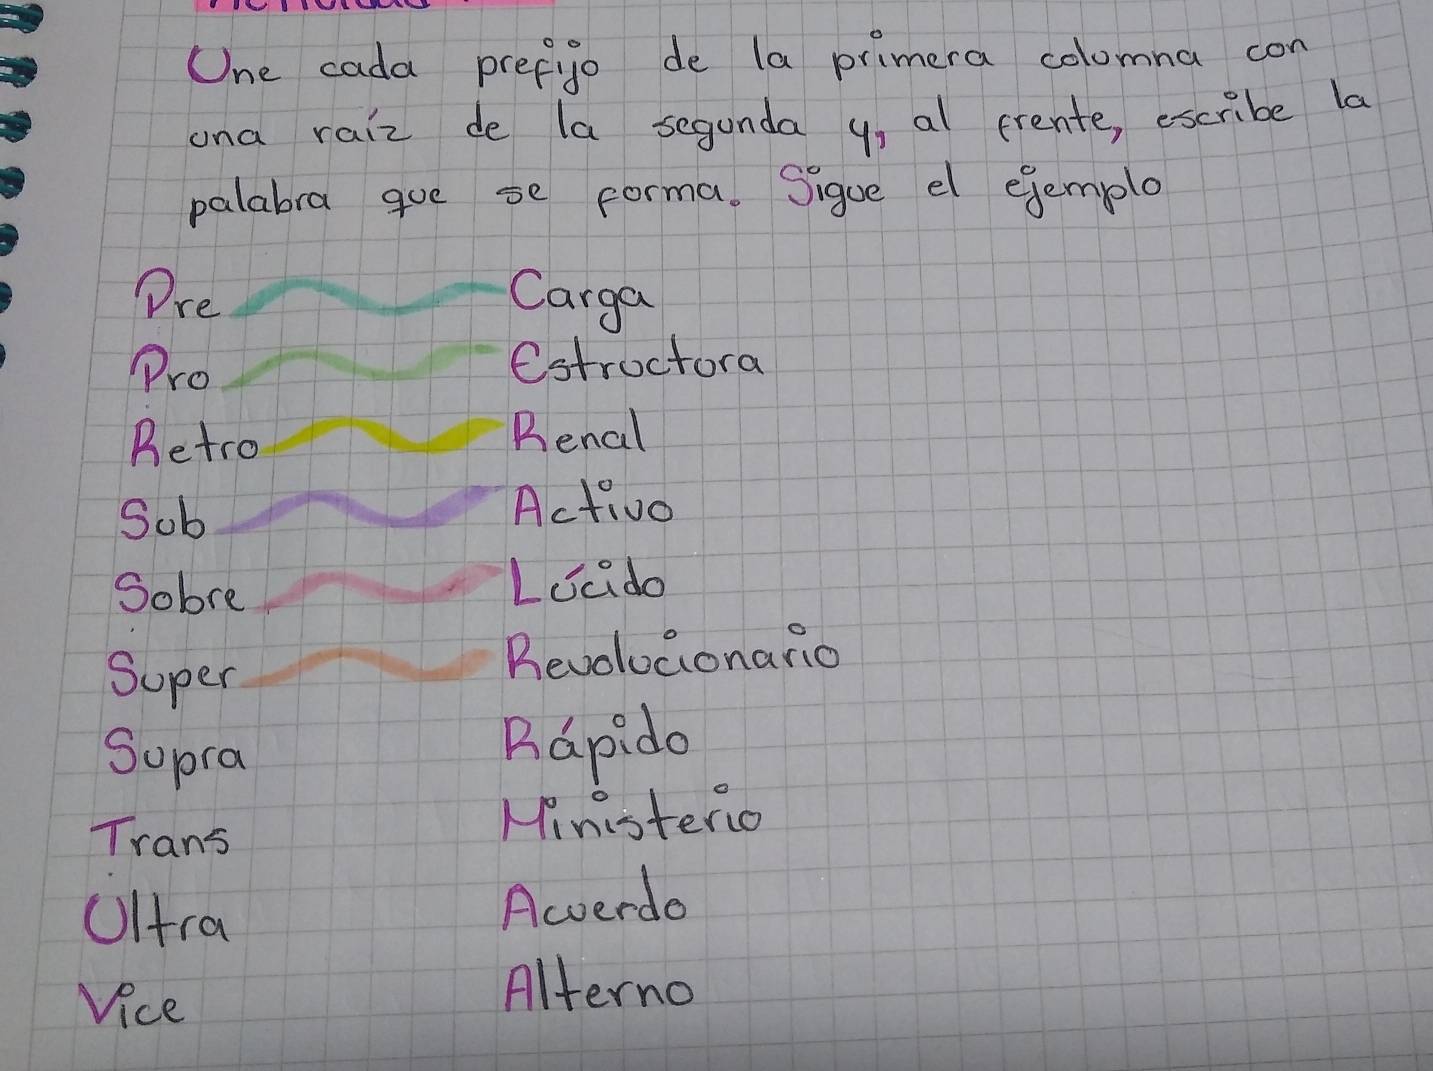 Une cada prefijo de la primera columna con
una raíz de la segunda y, al frente, escribe la
palabra que se forma. Sigue el ejemplo
Pre Carga
Pro Estructura
Retro Renal
Sub Activo
Sobre Lúcido
Super Revolucionario
Supra Rápido
Trans Ministerio
Ultra Acuerdo
Vice Alterno